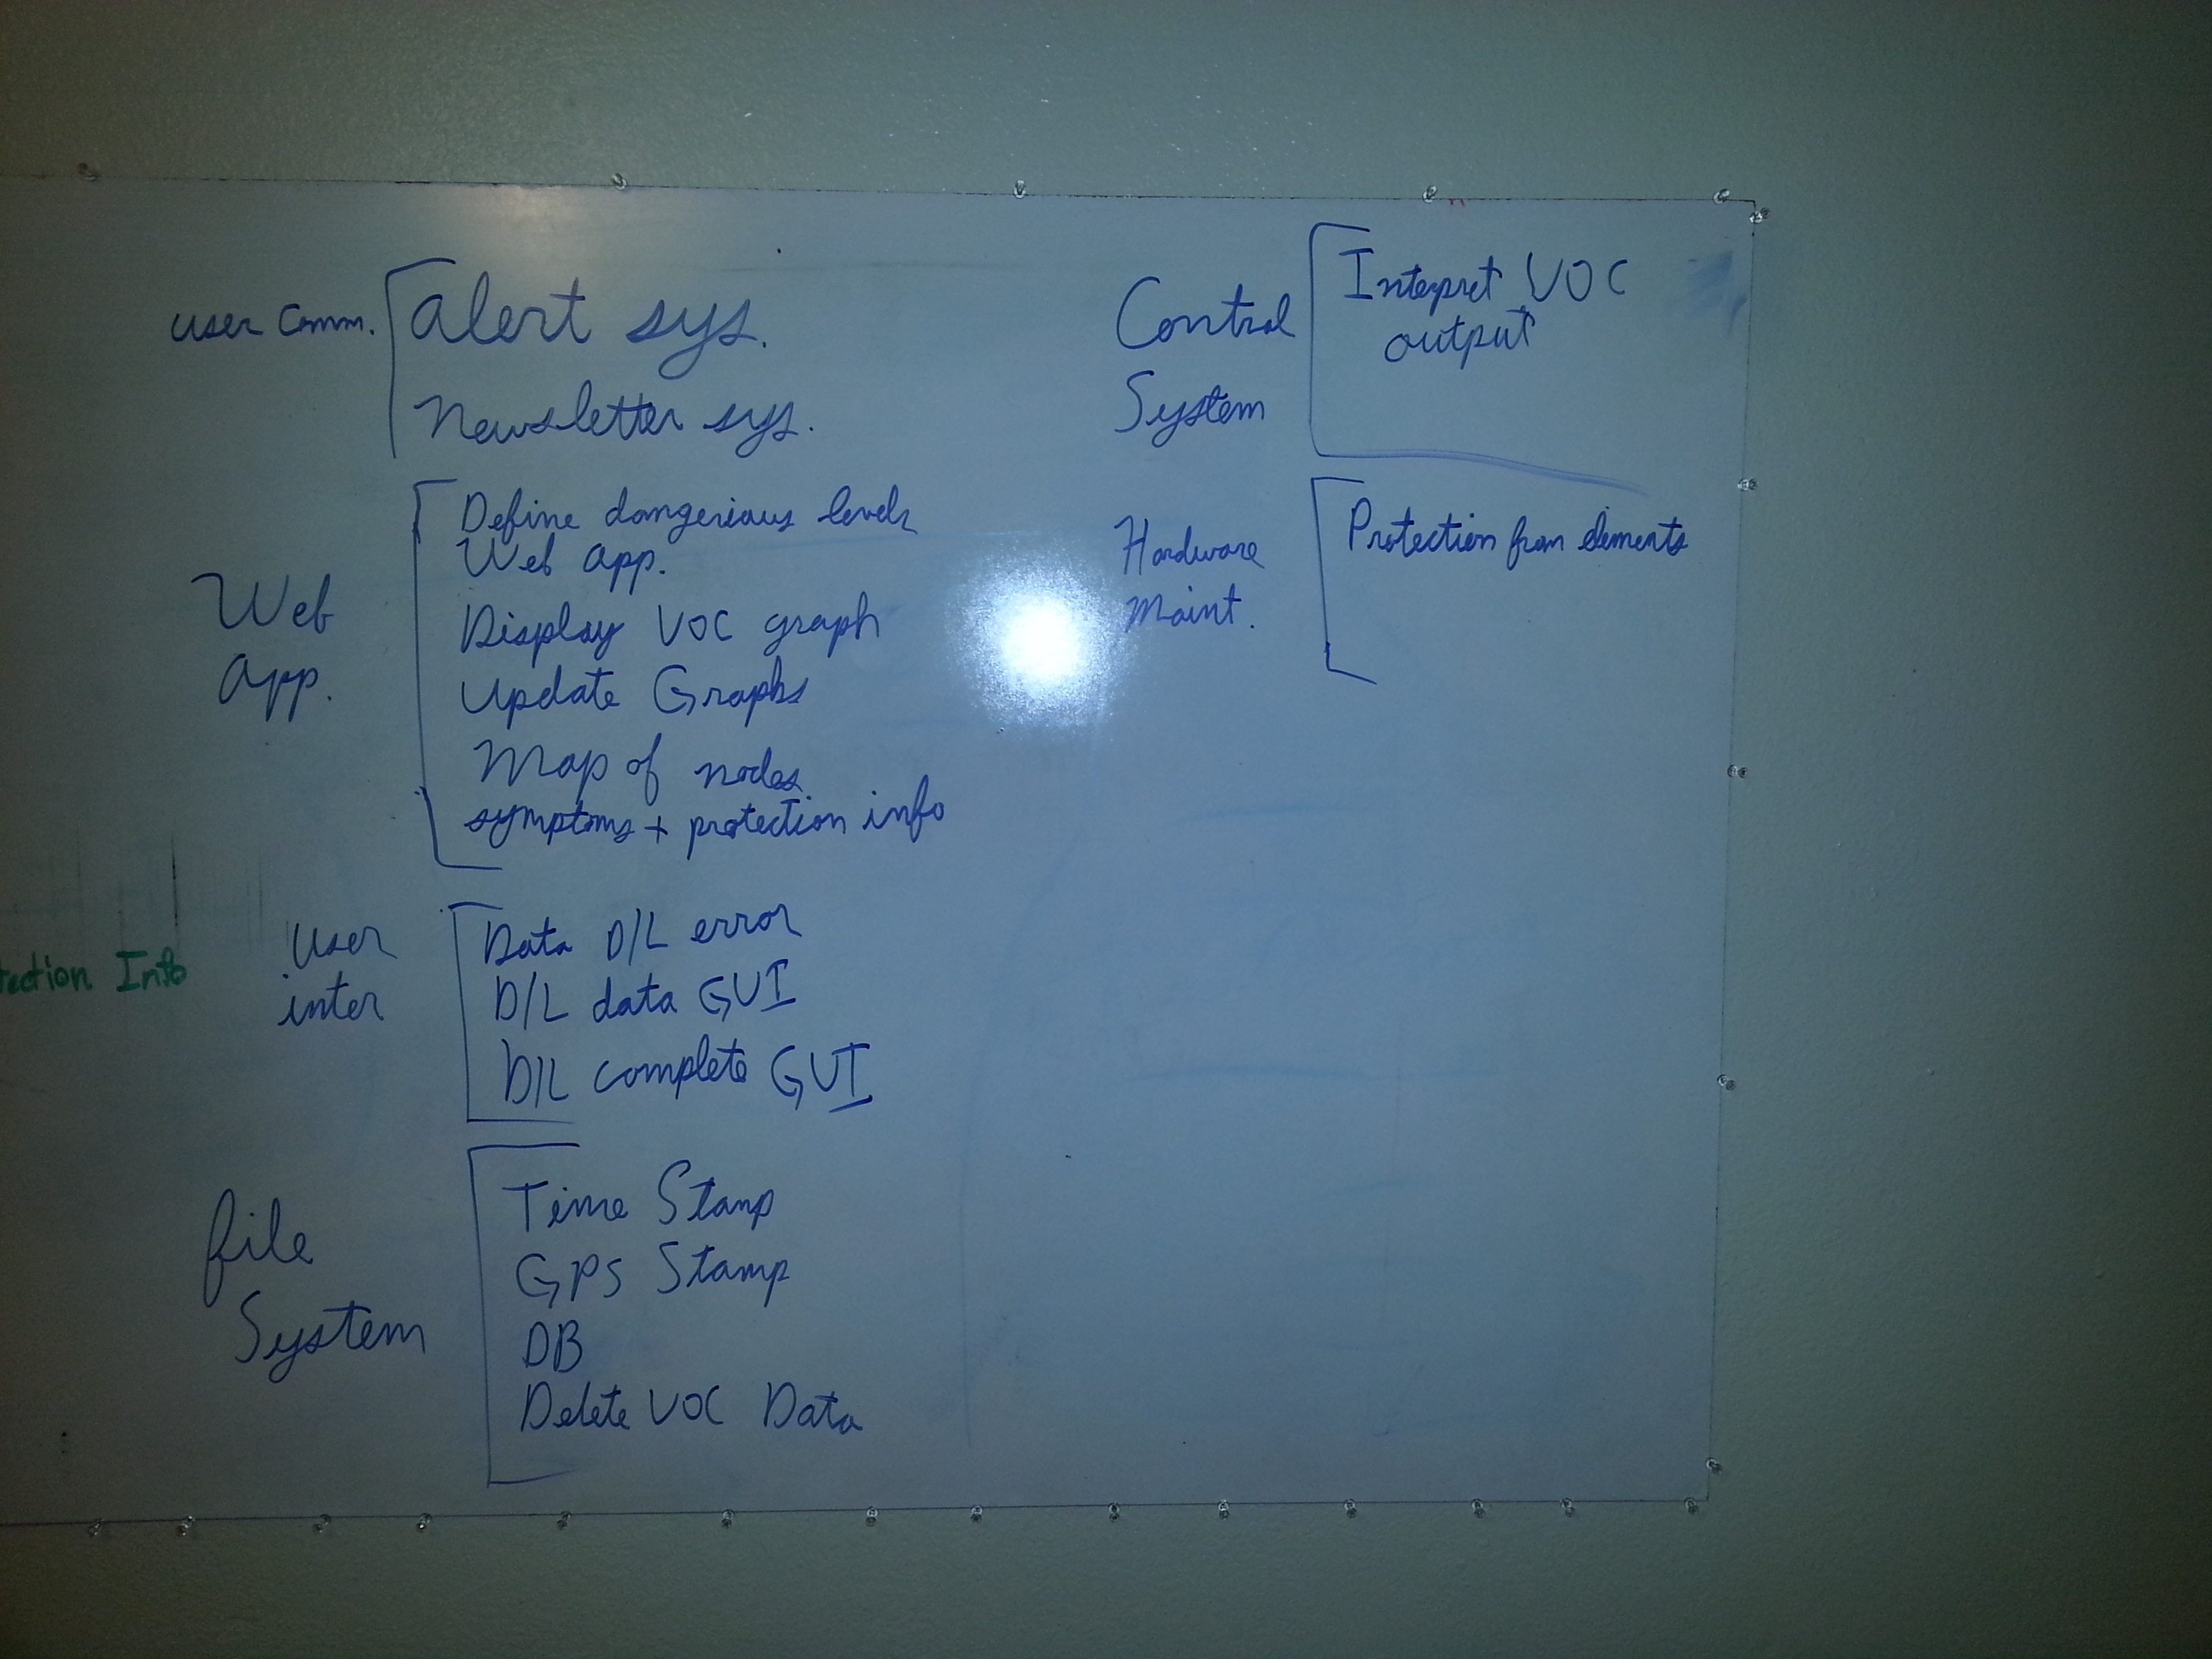 user comm.
alert sys.
Newsletter sys.
Web
app.
Define dangerious levels
Web app.
Display VOC graph
Update Graphs
Map of nodes
symptoms + protection info
User
inter
Data D/L error
D/L data GUI
D/L complete GUI
file
System
Time Stamp
GPS Stamp
DB
Delete VOC Data
Control
System
Interpret VOC
output
Hardware
Maint.
Protection from elements
tection Info